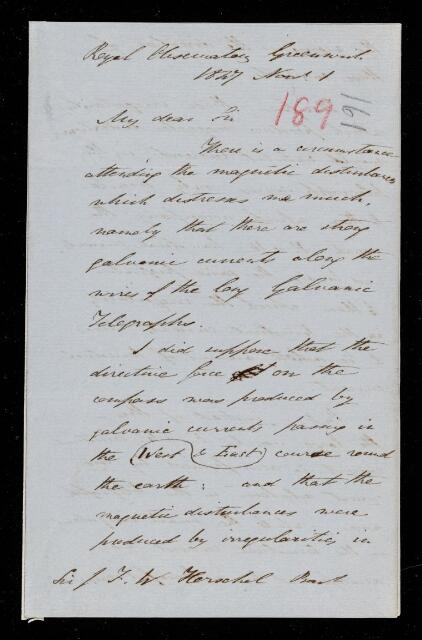 Royal Observatory Greenwich
1847 Nov. 1
189
191
My dear Sir
There is a circumstance
attending the magnetic disturbances
which distresses me much,
namely that there are strong
galvanic currents along the
wires of the long Galvanic
Telegraphs.
I did suppose that the
directive force on the
compass was produced by
galvanic currents passing in
the West & East course round
the earth: and that the
magnetic disturbances were
produced by irregularities in
Sir J. F. W. Herschel Bart